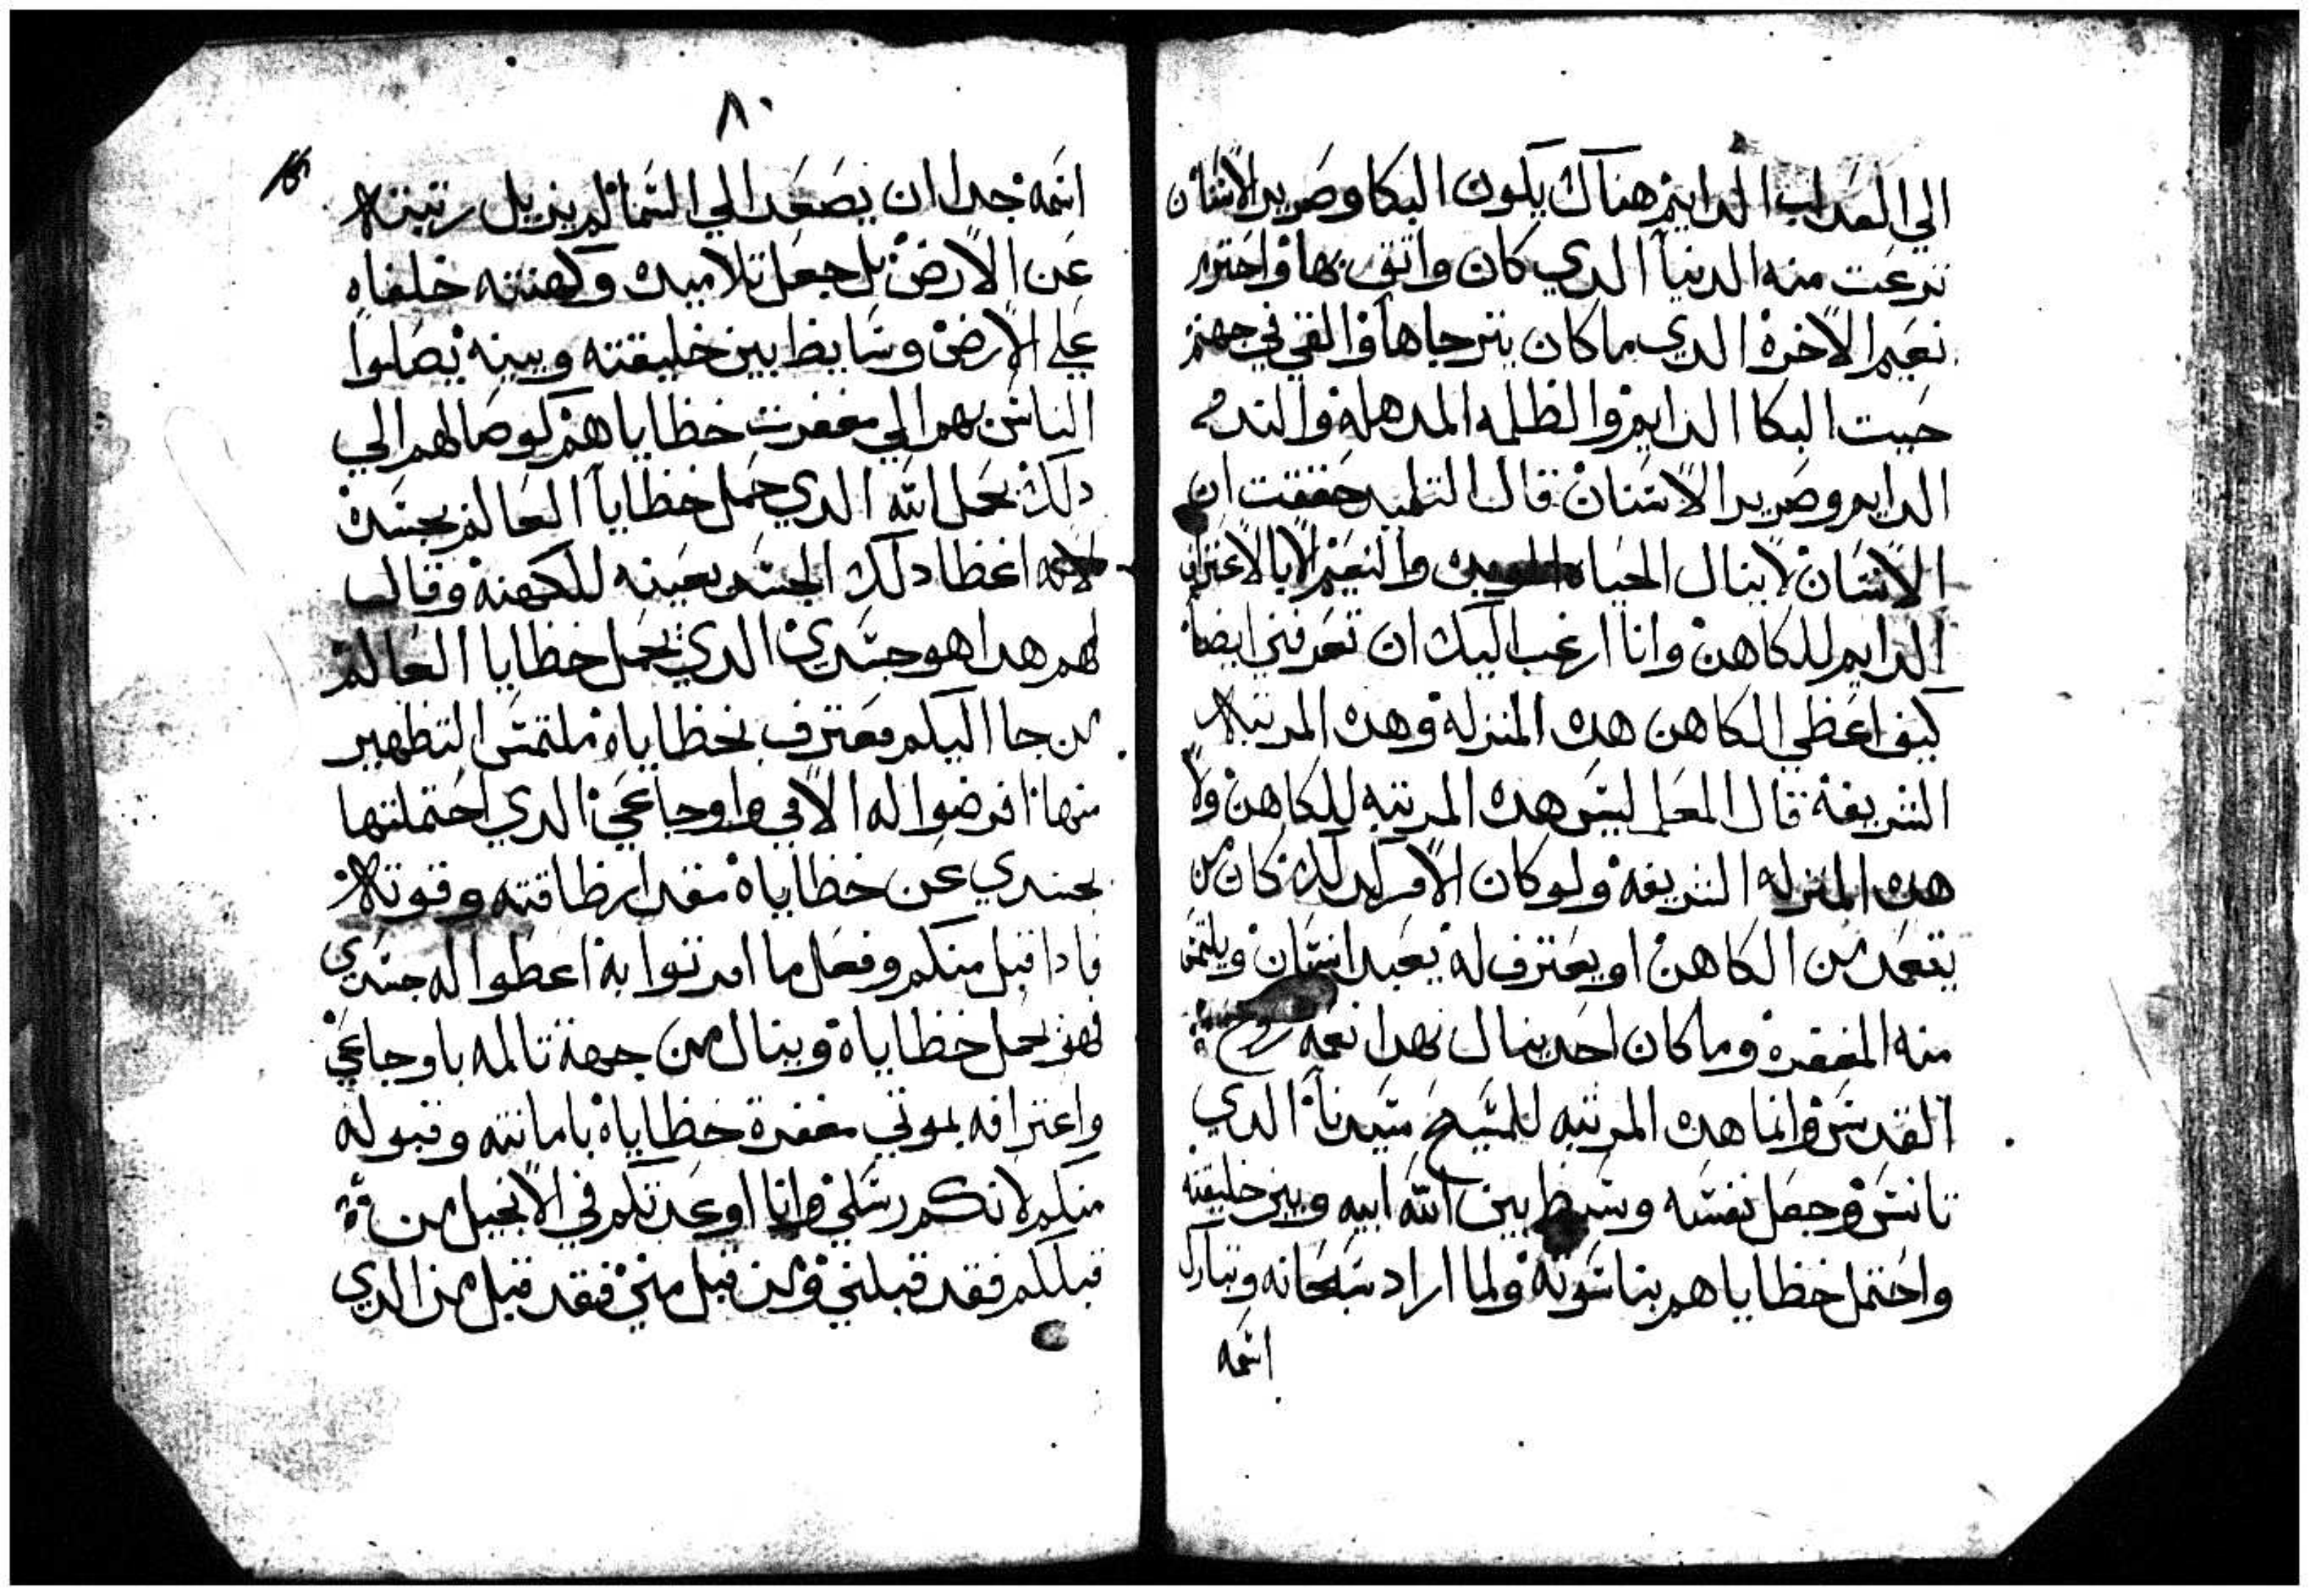 الي العداب الدايم هناك يكون البكا وصرير الاسنان
نزعت منه الدنيا الدي كان واتق بها واحترر
نعيم الاخرة الدي ما كان يترجاها والقي في جهنم
حيت البكا الدايم والظلمه المدهلة والندم
الدايم وصرير الاسنان قال التلميد حققت ان
الانسان لا ينال الحياه والنعيم الا بالاعتراف
الدايم للكاهن وانا ارغب اليك ان تعرفني ايضا
كيف اعطي الكاهن هده المنزلة وهده المرتبة
الشريفة قال المعلم ليس هده المرتبه للكاهن ولا
هده المنزله الشريفة ولو كان الامر كدلك كان من
يقعد من الكاهن او يعترف له يعبد انسان ويلتمس
منه المغفرة وما كان احد ينال بهدا نعمة روح
القدس وانما هده المرتبه للمسيح سيدنا الدي
تانس وجعل نفسه وسيط بين الله ابيه وبين خليقته
واحتمل خطاياهم بناسوته ولما اراد سبحانه وتبارك
اسمه
٨٠
اسمه جدا ان يصعد الي السما لم يزيل رتبته
عن الارض بل جعل تلاميده وكهنته خلفاه
علي الارض وسايط بين خليقته وبينه يصلوا
الناس بهم الي مغفرت خطاياهم كوصالهم الي
دلك بحمل الله الدي حمل خطايا العالم بجسده
لانه اعطا دلك الجسد بعينه للكهنة وقال
لهم هدا هو جسدي الدي يحمل خطايا العالم
من جا اليكم معترف بخطاياه ملتمس التطهير
منها افرضوا له الامي واوجاعي الدي احتملتها
بجسدي عن خطاياه مقدار طاقته وقوته
فادا قبل منكم وفعل ما امرتوا به اعطوا له جسدي
فهو يحمل خطاياه وينال من جهة تالمه باوجاعي
واعترافه بموتي مغفرة خطاياه بامانته وقبوله
منكم لانكم رسلي وانا اوعدتكم في الانجيل من
قبلكم فقد قبلني ومن قبل مني فقد قبل من الدي